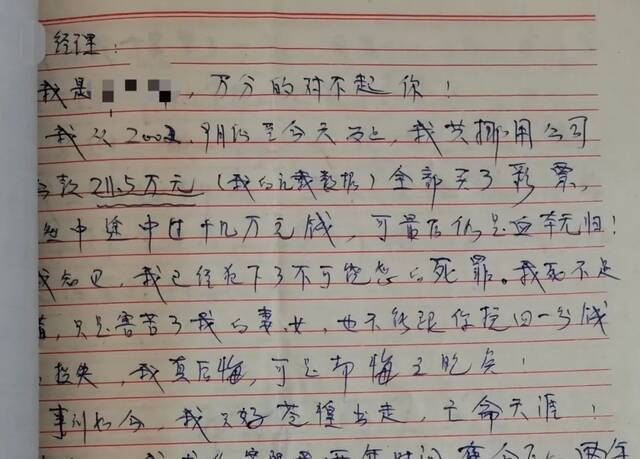 经理：
我是 ，万分的对不起你！
我从200 ，9月份至今天为止，我共挪用公司
公款211.5万元（我的记载数据）全部买了彩票，
中途中过十几万元钱，可最后仍是血本无归！
我知道，我已经犯下了不可饶恕的死罪。我死不足
惜，只是害苦了我的妻女，也不能跟你挽回一分钱
损失，我真后悔，可是却悔之晚矣！
事到如今，我只好苍惶出走，亡命天涯！
两年时间